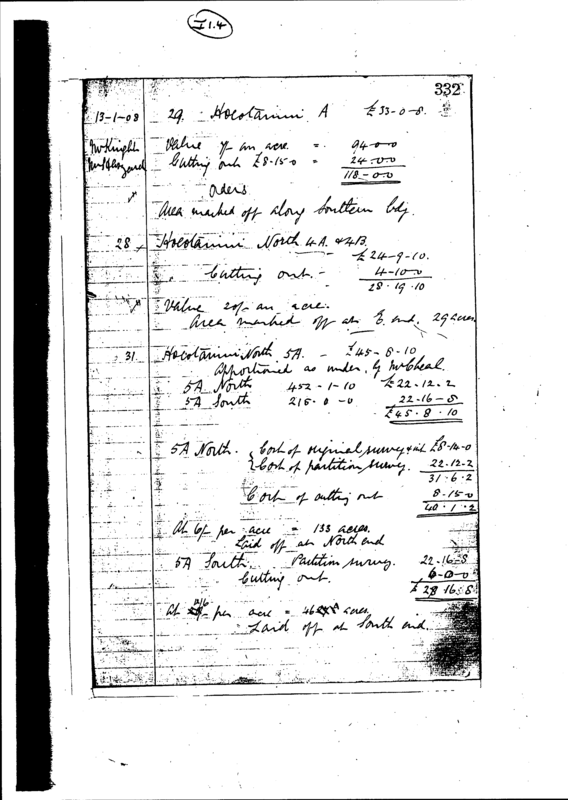 I 1.4
332
13-1-08 29. Hocotainui A £33-0-8.
McKnight Value 7/- an acre = 94-0-0
Cutting out £8-15-0 = 24-0-0
118-0-0
Orders
Area marked off along Southern bdy.
28 Hocotainui North 4A. & 4B.
£24-9-10.
" Cutting out. - 4-10-0
28.19.10
Value 20/- an acre.
Area marked off at E. end. 29 acres
31 Hocotainui North 5A. - £45-8-10
Apportioned as under, by McCheal.
5A North 452-1-10 £22.12.2
5A South 215.0-0 22-16-8
£45.8.10
5A North. Cost of original survey & int £8-14-0
Cost of partition survey. 22.12.2
31.6.2
Cost of cutting out 8.15-0
40.1.2
At 6/- per acre = 133 acres.
Laid off at North end
5A South. Partition survey. 22.16-8
Cutting out. 6-0-0
£28.16.8
At per acre = acres.
Laid off at South end.